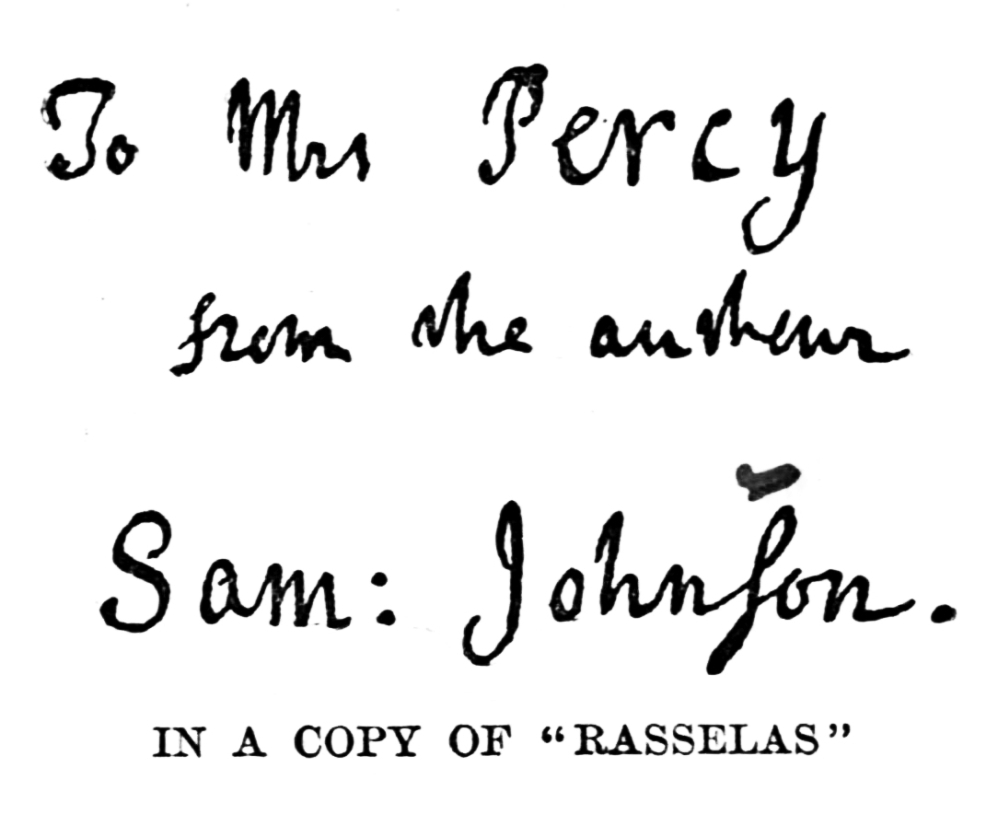 To Mrs Percy
from the authour
Sam: Johnſon.
IN A COPY OF “RASSELAS”